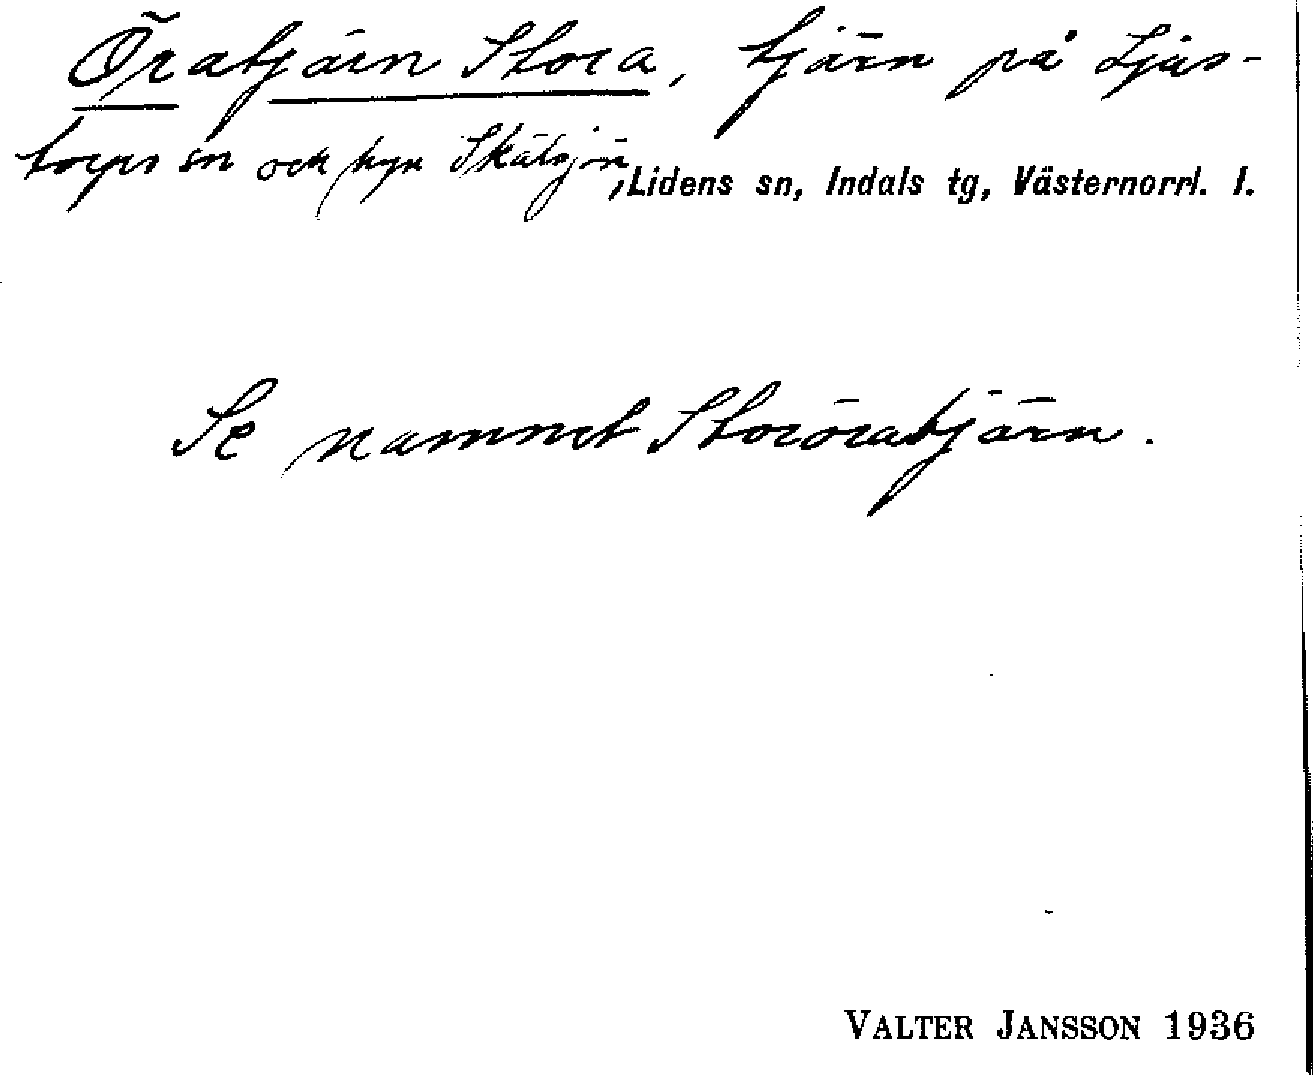 Öratjärn Stora, tjärn på Ljus-
torps sn och byn Skälsjön, Lidens sn, Indals tg, Västernorrl. l.
Se namnet Storöratjärn.
VALTER JANSSON 1936